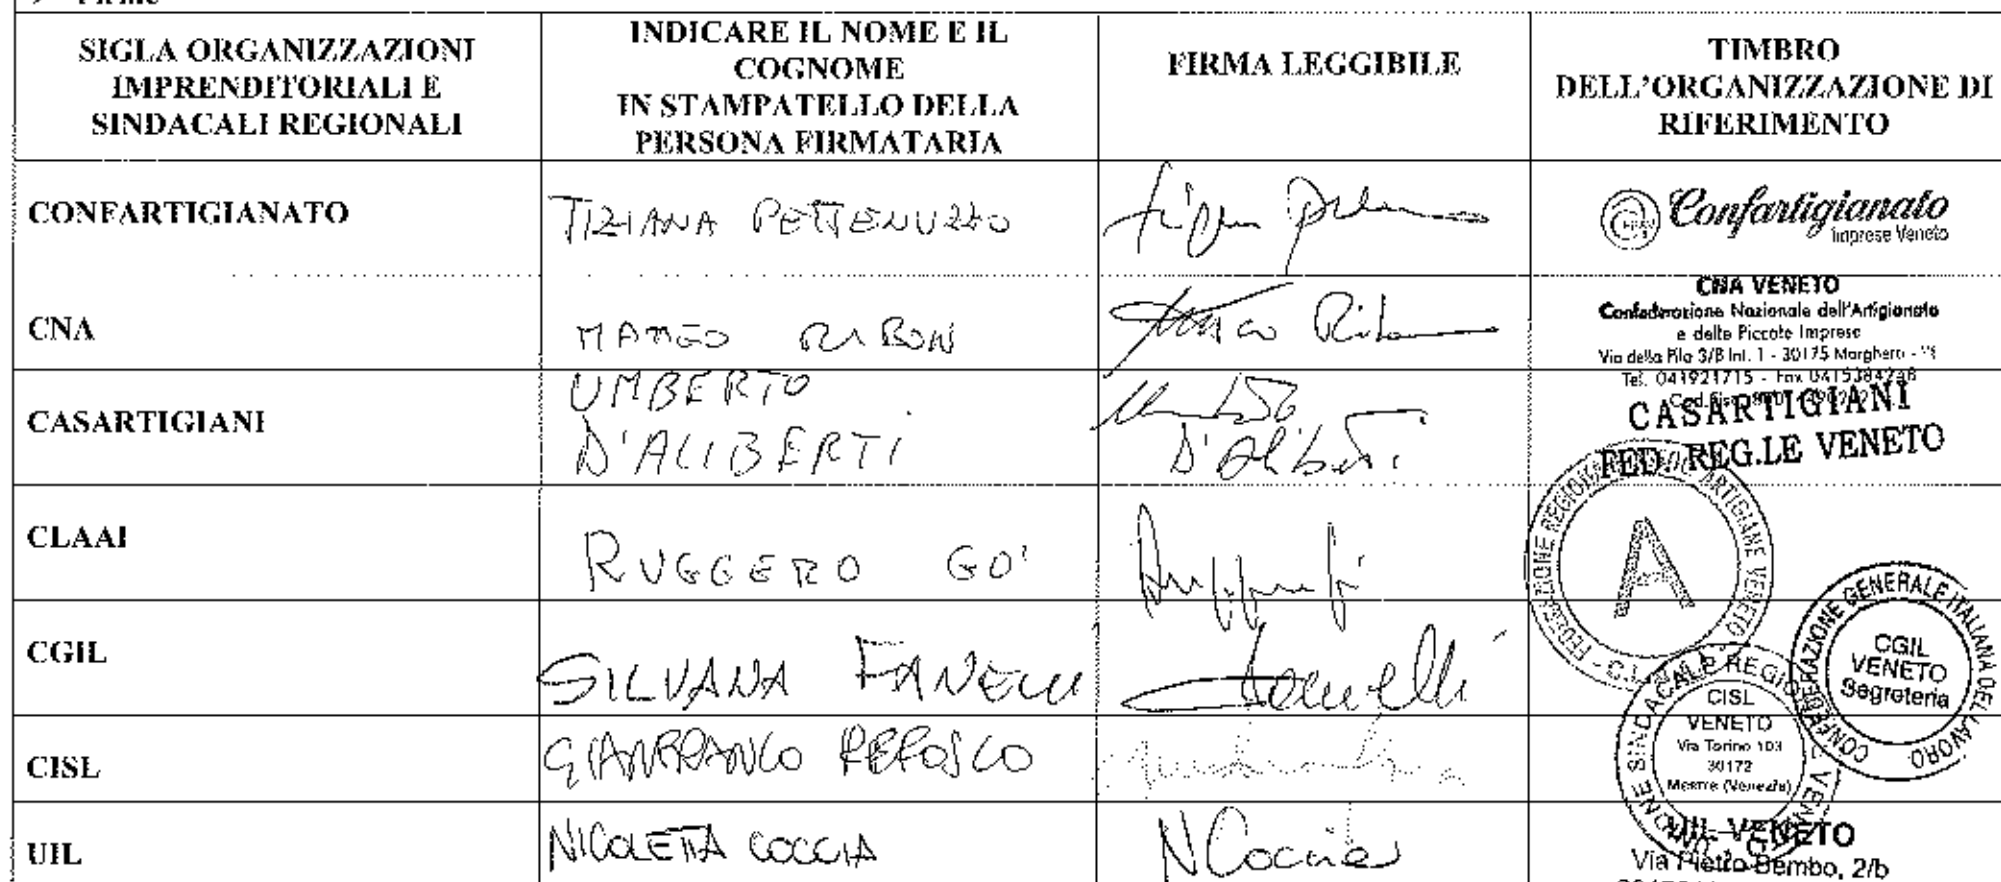 SIGLA ORGANIZZAZIONI
IMPRENDITORIALI E
SINDACALI REGIONALI
INDICARE IL NOME E IL
COGNOME
IN STAMPATELLO DELLA
PERSONA FIRMATARIA
FIRMA LEGGIBILE
TIMBRO
DELL'ORGANIZZAZIONE DI
RIFERIMENTO
CONFARTIGIANATO
TIZIANA PETTENUZZO
Confartigianato
Imprese Veneto
CNA
MATTEO RIBON
CNA VENETO
Confederazione Nazionale dell'Artigianato
e delle Piccole Imprese
Via della Pila 3/B Int. 1 - 30175 Marghera - VE
Tel. 041921715 - Fax
CASARTIGIANI
UMBERTO
D'ALIBERTI
Umberto
D'Aliberti
CASARTIGIANI
FED. REG.LE VENETO
CLAAI
RUGGERO GO'
A
CGIL
SILVANA FANELLI
Fanelli
CONFEDERAZIONE GENERALE ITALIANA DEL LAVORO
CGIL
VENETO
Segreteria
CISL
GIANFRANCO REFOSCO
CISL
VENETO
Via Torino 103
30172
Mestre (Venezia)
UIL
NICOLETTA COCCIA
N Coccia
UIL VENETO
Via Pietro Bembo, 2/b